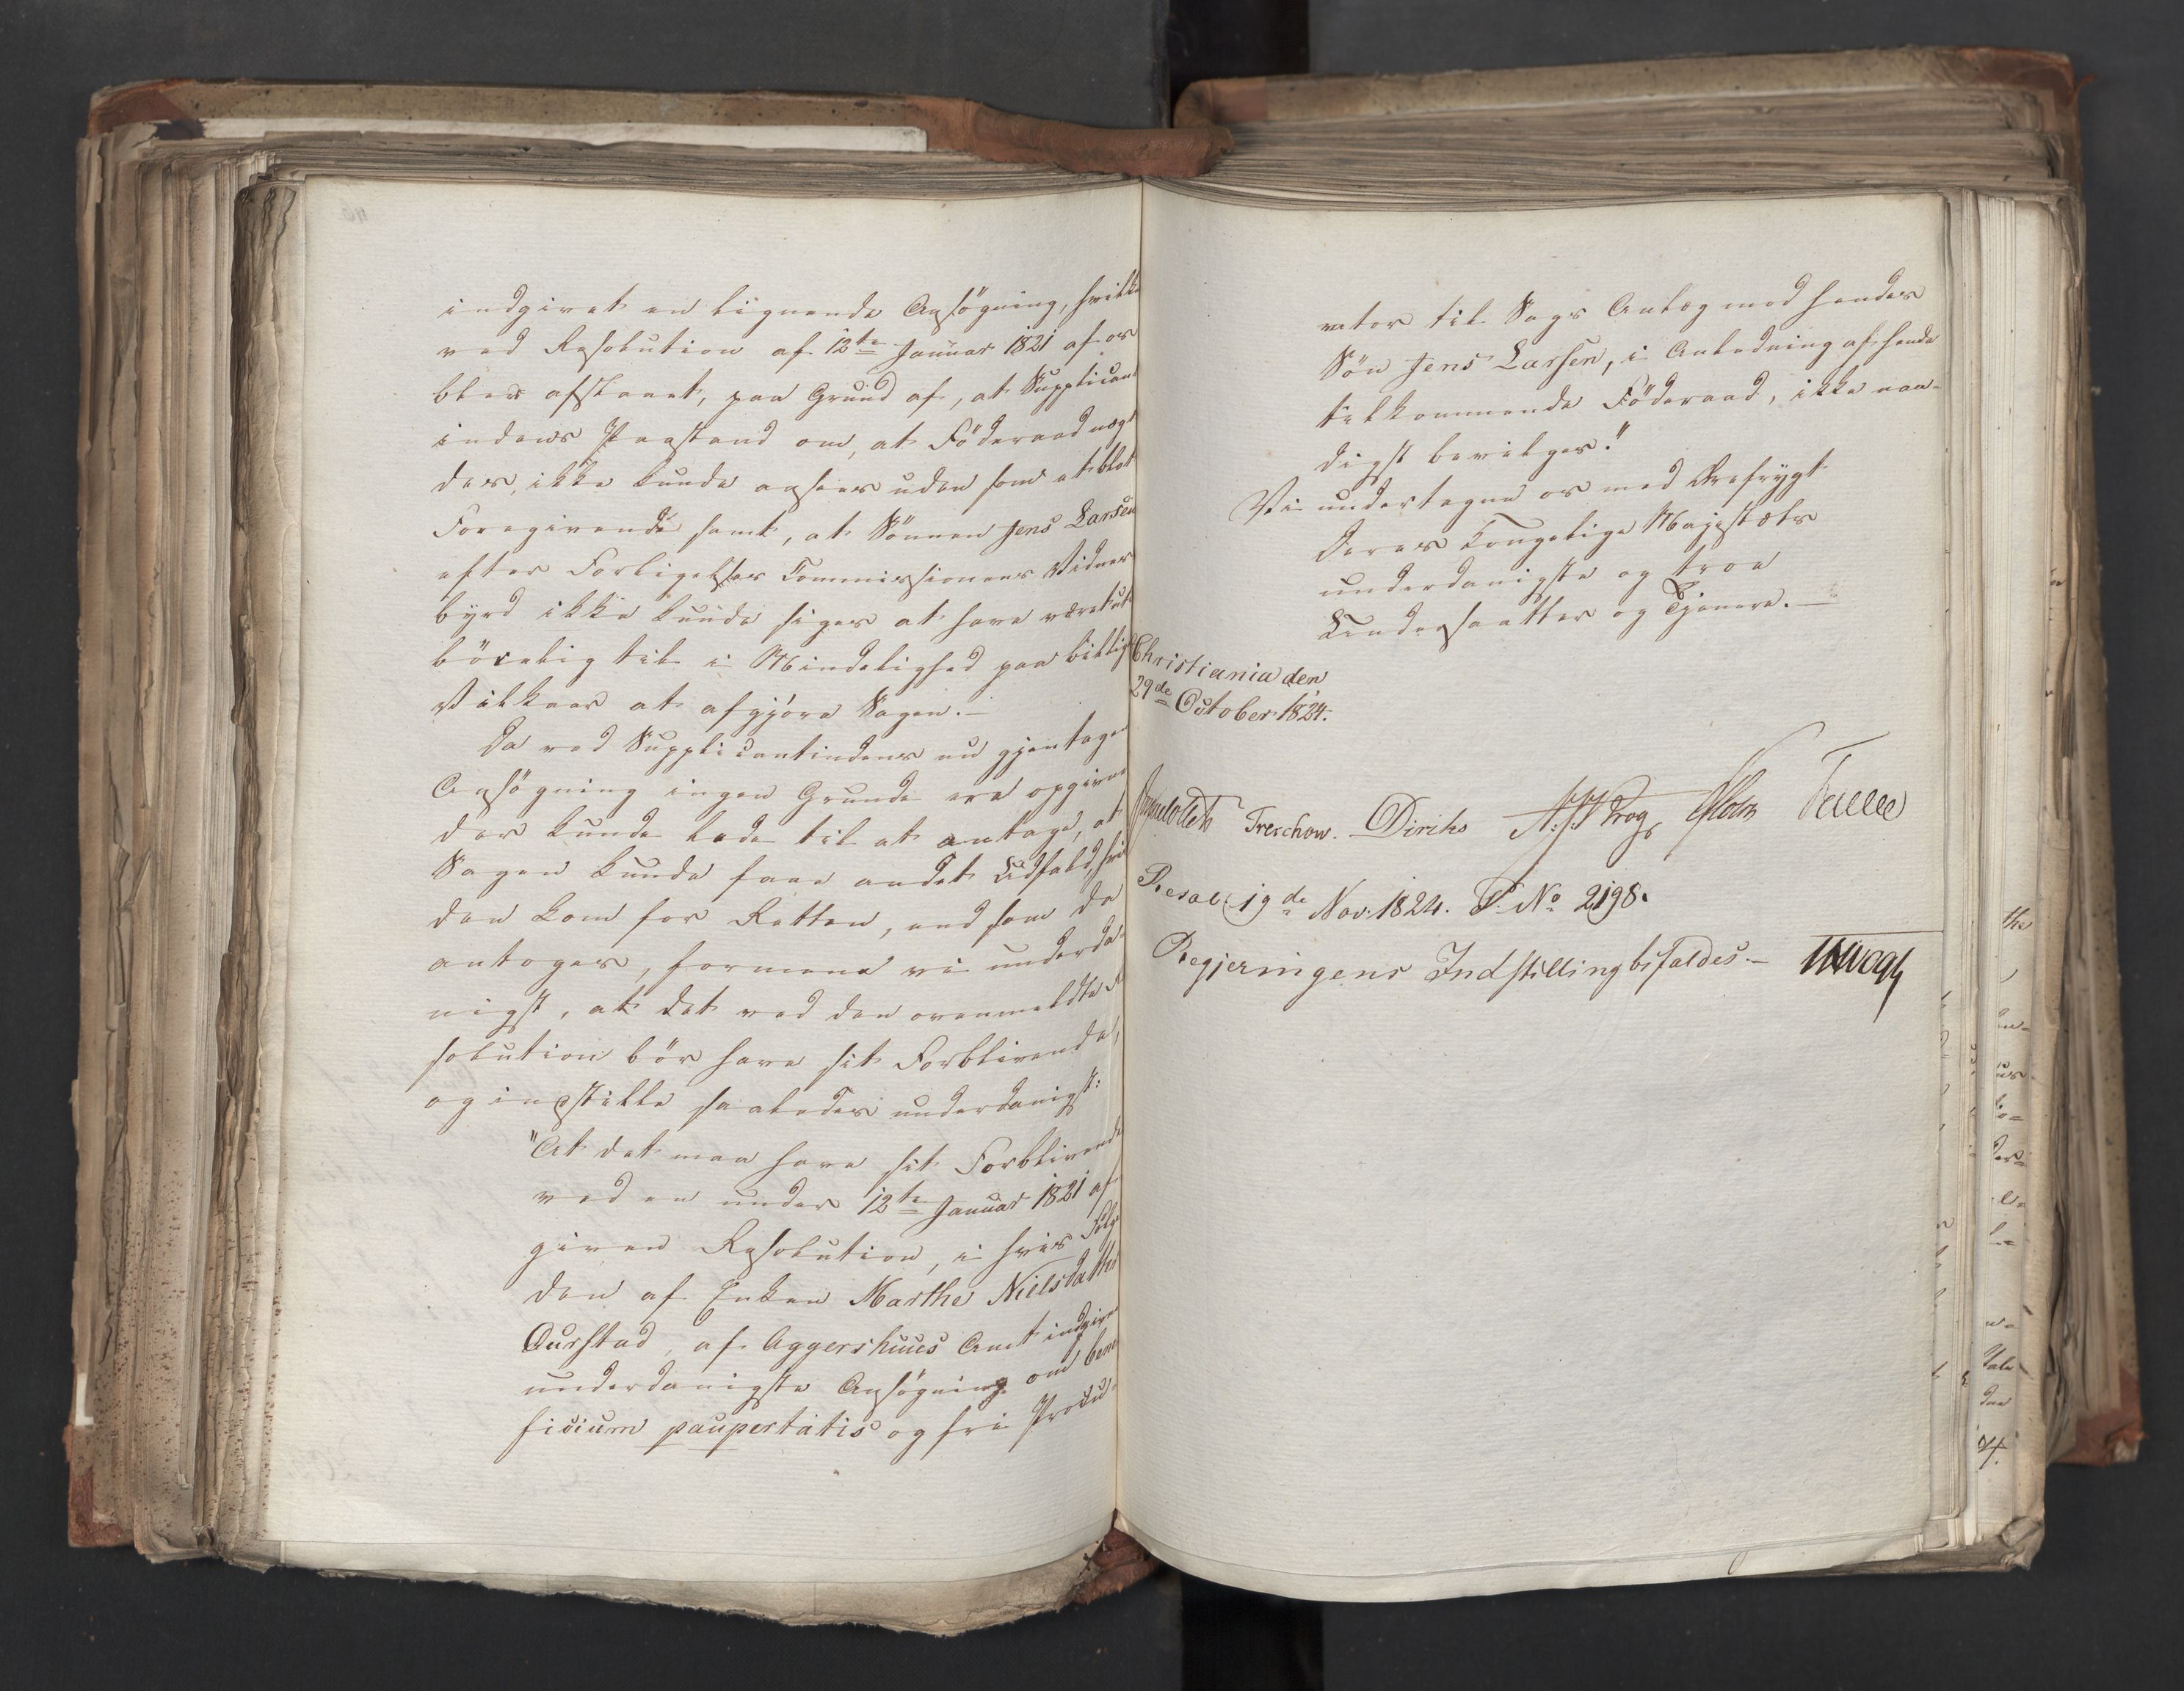 indgivet en lignende Ansögning, hvilke
ved Resolution af 12te Januar 1821 af os
blev afslaaet, paa Grund af, at Supplican
indens Paastand om, at Föderaad nægt
des, ikke kunde ansees uden som et blot
Foregivende samt, at Sönnen Jens Larsen
efter Forligelses Commissionens Vidnes
byrd ikke kunde siges at have været ut
böielig til i Mindelighed paa billig
Vilkaar at afgjöre Sagen.-
Da ved Supplicantindens nu gjentage
Ansögning ingen Grunde ere opgivne
der kunde lede til at antage, at
Sagen kunde faae andet Udfald, hvis
den kom for Retten, end som da
antoges, formene vi underda-
nigst, at det ved den ovenmeldte Re
solution bör have sit Forblivende,
og indstille saaledes underdanigst:
"At det maa have sit Forblivende
ved en under 12te Januar 1821 af
given Resolution, i hvis Fölge
den af Enken Marthe Nielsdatter
Ourstad, af Aggershuus Amt indgivne
underdanigste Ansögning om bene
ficium paupertatis og fri Procu-
rator til Sags Anlæg mod hendes
Sön Jens Larsen, i Anledning af hende
tilkommende Föderaad, ikke naa-
digst bevilges."
Vi undertegne os med Ærefrygt
Deres Kongelige Majestæts
underdanigste og troe
Undersaatter og Tjenere.-
Christiania den
29de October 1824.
Treschow. Diriks Krog Holst
Resol 19de Nov: 1824. P. No 2198.
Regjeringens Indstilling bifaldes-